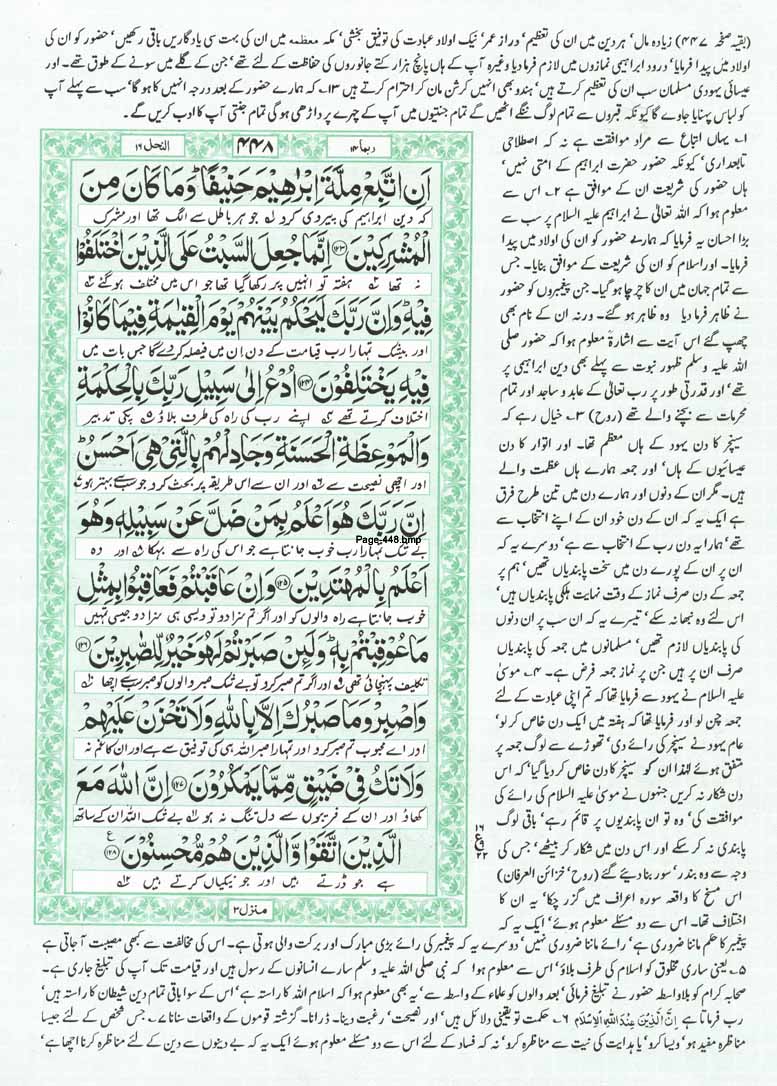 (بقیہ صفحہ ۴۴۷) زیادہ مال، ہر دین میں ان کی تعظیم، دراز عمر، نیک اولاد عبادت کی توفیق بخشی، مکہ معظمہ میں ان کی بہت سی یادگاریں باقی رکھیں، حضور کو ان کی
اولاد میں پیدا فرمایا، درود ابراہیمی نمازوں میں لازم فرما دیا وغیرہ آپ کے ہاں پانچ ہزار کتے جانوروں کی حفاظت کے لئے تھے، جن کے گلے میں سونے کے طوق تھے۔ اور
عیسائی یہودی مسلمان سب ان کی تعظیم کرتے ہیں، ہندو بھی انہیں کرشن مان کر احترام کرتے ہیں ۱۳۔ کہ ہمارے حضور کے بعد درجہ انہیں کا ہوگا، سب سے پہلے آپ
کو لباس پہنایا جاوے گا کیونکہ قبروں سے تمام لوگ ننگے اٹھیں گے تمام جنتیوں میں آپ کے چہرے پر داڑھی ہوگی تمام جنتی آپ کا ادب کریں گے۔
ربما ۱۴
۴۴۸
النحل ۱۶
اَنِ اتَّبِعْ مِلَّةَ اِبْرٰهِيْمَ حَنِيْفًا ؕ وَمَا كَانَ مِنَ
کہ دین ابراہیم کی پیروی کرو جو ہر باطل سے الگ تھا اور مشرک
الْمُشْرِكِيْنَ ﴿۱۲۳﴾ اِنَّمَا جُعِلَ السَّبْتُ عَلَى الَّذِيْنَ اخْتَلَفُوْا
نہ تھا ہفتہ تو انہیں پر رکھا گیا تھا جو اس میں مختلف ہوگئے
فِيْهِ ؕ وَاِنَّ رَبَّكَ لَيَحْكُمُ بَيْنَهُمْ يَوْمَ الْقِيٰمَةِ فِيْمَا كَانُوْا
اور بیشک تمہارا رب قیامت کے دن ان میں فیصلہ کردے گا جس بات میں
فِيْهِ يَخْتَلِفُوْنَ ﴿۱۲۴﴾ اُدْعُ اِلٰى سَبِيْلِ رَبِّكَ بِالْحِكْمَةِ
اختلاف کرتے تھے اپنے رب کی راہ کی طرف بلاؤ پکی تدبیر
وَالْمَوْعِظَةِ الْحَسَنَةِ وَجَادِلْهُمْ بِالَّتِيْ هِيَ اَحْسَنُ ؕ
اور اچھی نصیحت سے اور ان سے اس طریقہ پر بحث کرو جو سب سے بہتر ہو
اِنَّ رَبَّكَ هُوَ اَعْلَمُ بِمَنْ ضَلَّ عَنْ سَبِيْلِهٖ وَهُوَ
Page-448.bmp
بے شک تمہارا رب خوب جانتا ہے جو اس کی راہ سے بہکا اور وہ
اَعْلَمُ بِالْمُهْتَدِيْنَ ﴿۱۲۵﴾ وَاِنْ عَاقَبْتُمْ فَعَاقِبُوْا بِمِثْلِ
خوب جانتا ہے راہ والوں کو اور اگر تم سزا دو تو ویسی ہی سزا دو جیسی تمہیں
مَا عُوْقِبْتُمْ بِهٖ ؕ وَلَئِنْ صَبَرْتُمْ لَهُوَ خَيْرٌ لِّلصّٰبِرِيْنَ ﴿۱۲۶﴾
تکلیف پہنچائی تھی اور اگر تم صبر کرو تو بے شک صبر والوں کو صبر سب سے اچھا
وَاصْبِرْ وَمَا صَبْرُكَ اِلَّا بِاللّٰهِ وَلَا تَحْزَنْ عَلَيْهِمْ
اور اے محبوب تم صبر کرو اور تمہارا صبر اللہ ہی کی توفیق سے ہے اور ان کا غم نہ
وَلَا تَكُ فِيْ ضَيْقٍ مِّمَّا يَمْكُرُوْنَ ﴿۱۲۷﴾ اِنَّ اللّٰهَ مَعَ
کھاؤ اور ان کے فریبوں سے دل تنگ نہ ہو بے شک اللہ ان کے ساتھ
الَّذِيْنَ اتَّقَوْا وَّالَّذِيْنَ هُمْ مُّحْسِنُوْنَ ﴿۱۲۸﴾
ہے جو ڈرتے ہیں اور جو نیکیاں کرتے ہیں
منزل ۳
۱۶
ع
۲۲
۱۔ یہاں اتباع سے مراد موافقت ہے نہ کہ اصطلاحی
تابعداری، کیونکہ حضور حضرت ابراہیم کے امتی نہیں،
ہاں حضور کی شریعت ان کے موافق ہے ۲۔ اس سے
معلوم ہوا کہ اللہ تعالیٰ نے ابراہیم علیہ السلام پر سب سے
بڑا احسان یہ فرمایا کہ ہمارے حضور کو ان کی اولاد میں پیدا
فرمایا۔ اور اسلام کو ان کی شریعت کے موافق بنایا۔ جس
سے تمام جہان میں ان کا چرچا ہوگیا۔ جن پیغمبروں کو حضور
نے ظاہر فرما دیا وہ ظاہر ہوگئے۔ ورنہ ان کے نام بھی
چھپ گئے اس آیت سے اشارۃً معلوم ہوا کہ حضور صلی
اللہ علیہ وسلم ظہور نبوت سے پہلے بھی دین ابراہیمی پر
تھے، اور قدرتی طور پر رب تعالیٰ کے عابد و ساجد اور تمام
محرمات سے بچنے والے تھے (روح) ۳۔ خیال رہے کہ
سنیچر کا دن یہود کے ہاں معظم تھا۔ اور اتوار کا دن
عیسائیوں کے ہاں، اور جمعہ ہمارے ہاں عظمت والے
ہیں۔ مگر ان کے دنوں اور ہمارے دن میں تین طرح فرق
ہے ایک یہ کہ ان کے دن خود ان کے اپنے انتخاب سے
تھے، ہمارا یہ دن رب کے انتخاب سے ہے، دوسرے یہ کہ
ان پر ان کے پورے دن میں سخت پابندیاں تھیں، ہم پر
جمعہ کے دن صرف نماز کے وقت نہایت ہلکی پابندیاں ہیں،
اس لئے وہ نبھا نہ سکے، تیسرے یہ کہ ان سب پر ان دنوں
کی پابندیاں لازم تھیں، مسلمانوں میں جمعہ کی پابندیاں
صرف ان پر ہیں جن پر نماز جمعہ فرض ہے۔ ۴۔ موسیٰ
علیہ السلام نے یہود سے فرمایا تھا کہ تم اپنی عبادت کے لئے
جمعہ چن لو اور فرمایا تھا کہ ہفتہ میں ایک دن خاص کر لو،
عام یہود نے سنیچر کی رائے دی، تھوڑے سے لوگ جمعہ پر
متفق ہوئے لہٰذا ان کو سنیچر کا دن خاص کر دیا گیا، کہ اس
دن شکار نہ کریں جنہوں نے موسیٰ علیہ السلام کی رائے کی
موافقت کی، وہ تو ان پابندیوں پر قائم رہے، باقی لوگ
پابندی نہ کر سکے اور اس دن میں شکار کر بیٹھے، جس کی
وجہ سے وہ بندر، سور بنا دیئے گئے (روح، خزائن العرفان)
اس مسخ کا واقعہ سورہ اعراف میں گزر چکا، یہ ان کا
اختلاف تھا۔ اس سے دو مسئلے معلوم ہوئے، ایک یہ کہ
پیغمبر کا حکم ماننا ضروری ہے، رائے ماننا ضروری نہیں، دوسرے یہ کہ پیغمبر کی رائے بڑی مبارک اور برکت والی ہوتی ہے۔ اس کی مخالفت سے کبھی مصیبت آ جاتی ہے
۵۔ یعنی ساری مخلوق کو اسلام کی طرف بلاؤ، اس سے معلوم ہوا کہ نبی صلی اللہ علیہ وسلم سارے انسانوں کے رسول ہیں اور قیامت تک آپ کی تبلیغ جاری ہے۔
صحابہ کرام کو بلاواسطہ حضور نے تبلیغ فرمائی، بعد والوں کو علماء کے واسطہ سے، یہ بھی معلوم ہوا کہ اسلام اللہ کا راستہ ہے، اس کے سوا باقی تمام دین شیطان کا راستہ ہیں،
رب فرماتا ہے اِنَّ الدِّيْنَ عِنْدَ اللّٰهِ الْاِسْلَام ۶۔ حکمت تو یقینی دلائل ہیں، اور نصیحت، رغبت دینا۔ ڈرانا۔ گزشتہ قوموں کے واقعات سنانا ۷۔ جس شخص کے لئے جیسا
مناظرہ مفید ہو، ویسا کرو، یا ہدایت کی نیت سے مناظرہ کرو، نہ کہ فساد کے لئے اس سے دو مسئلے معلوم ہوئے ایک یہ کہ بے دینوں سے دین کے لئے مناظرہ کرنا اچھا ہے،